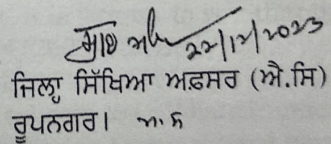 22/12/2023
ਜਿਲ੍ਹਾ ਸਿੱਖਿਆ ਅਫ਼ਸਰ (ਐ.ਸਿ)
ਰੂਪਨਗਰ।